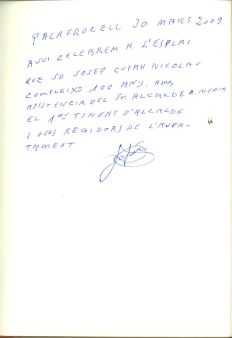 PALAFRUGELL 30 MARS 2009
AVUI CELEBREM A L'ESPLAI
QUE JO JOSEP NICOLAU
COMPLEIXO 100 ANY. AMB
ASISTENCIA DEL Sr. ALCALDE
EL 1er TINENT D'ALCALDE
I DELS REGIDORS DE L'AJUN-
TAMENT